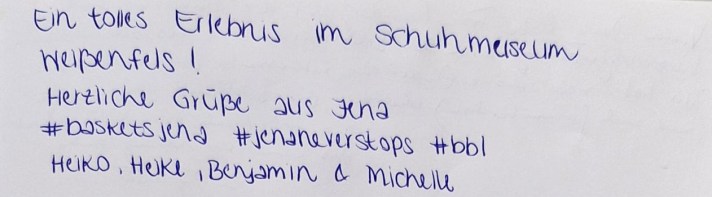 Ein tolles Erlebnis im Schuhmuseum
Weißenfels!
Herzliche Grüße aus Jena
#basketsjena #jenaneverstops #bbl
Heiko, Heike, Benjamin & Michelle